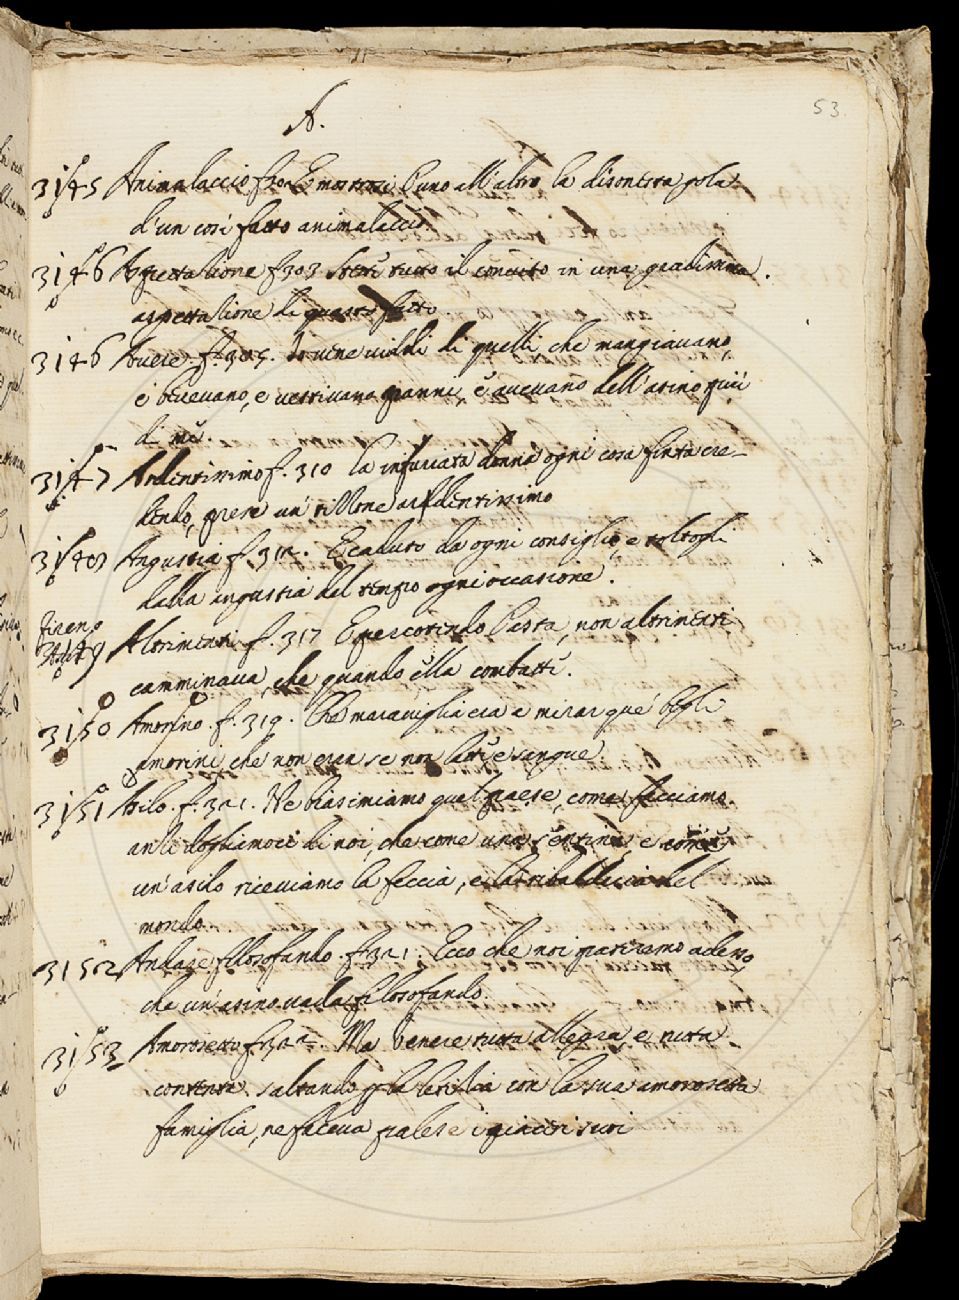 53.
A.
3145 Animalaccio f. 302 E mostrasi l'uno all'altro la disonesta gola
d'un così fatto animalaccio
3146 Aspettazione f 303 Stette tutto il convito in una grandissima
aspettazione di questo fatto
3146 Avere f. 305. Io vene viddi di quelli che mangiavano
e bevevano, e vestivano panni, e avevano dell'asino più
di me.
3147 Ardentissimo f. 310 la infuriata donna ogni cosa finta cre-
dendo, prese un tizzone ardentissimo
3148 Angustia f. 312. E caduto da ogni consiglio, e toltogli
dalla angustia del tempo ogni occasione.
3149 Altrimenti f. 317 E percotendo l'asta, non altrimenti
camminava, che quando ella combattè.
3150 Amorino. f. 319. Che maraviglia era a mirar que' begli
amorini che non eran se non latte e sangue
3151 Asilo. f. 321. Ne biasimiamo quel paese, come facciamo
anzi dogliamoci di noi, che come una sentina, e come
un'asilo riceviamo la feccia, e la ribalderia del
mondo
3152 Andare filosofando. f. 321. Ecco che noi patiremo adesso,
che un'asino vada filosofando.
3153 Amorosetto f. 322. Ma Venere tutta allegra, e tutta
contenta saltando per la letizia con la sua amorosetta
famiglia, ne faceva palese i piaceri suoi